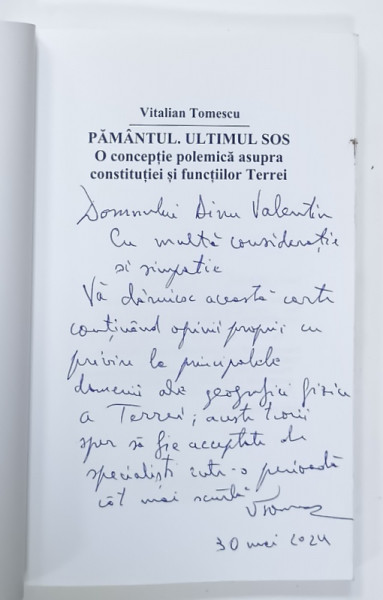 Vitalian Tomescu
PĂMÂNTUL. ULTIMUL SOS
O concepție polemică asupra
constituției și funcțiilor Terrei
Domnului Dinu Valentin
Cu multă considerație
si simpatie
Vă dăruiesc această carte
conținând opinii proprii cu
privire la principalele
domenii ale geografiei fizice
a Terrei; aceste teorii
sper să fie acceptate de
specialiști într-o perioadă
cât mai scurtă
30 mai 2024